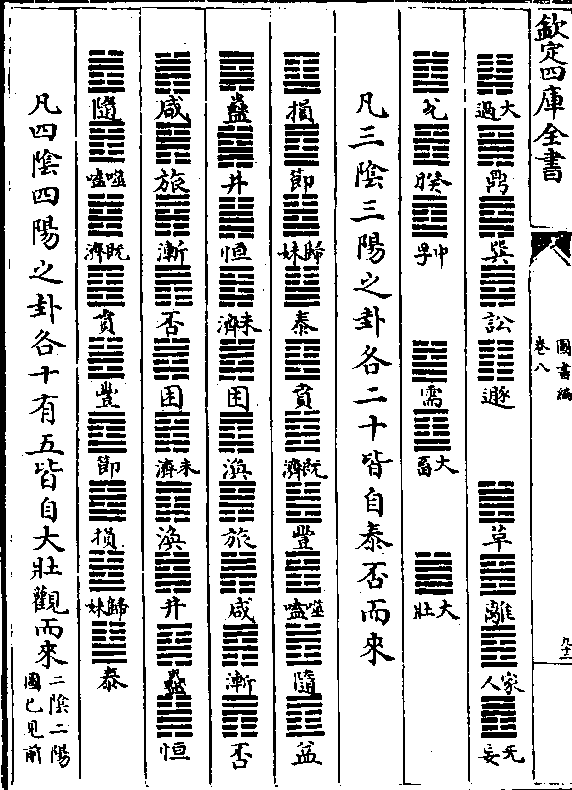 欽定四庫全書
圖書編
卷八
大過 鼎 巽 訟 遯 革 離 家人 无妄
兌 睽 中孚 需 大畜 大壯
凡三陰三陽之卦各二十皆自泰否而來
損 節 歸妹 泰 賁 既濟 豐 噬嗑 隨 益
蠱 井 恒 未濟 困 渙 旅 咸 漸 否
咸 旅 漸 否 困 未濟 渙 井 蠱 恒
隨 噬嗑 既濟 賁 豐 節 損 歸妹 泰
凡四陰四陽之卦各十有五皆自大壯觀而來
二陰二陽
圖已見前